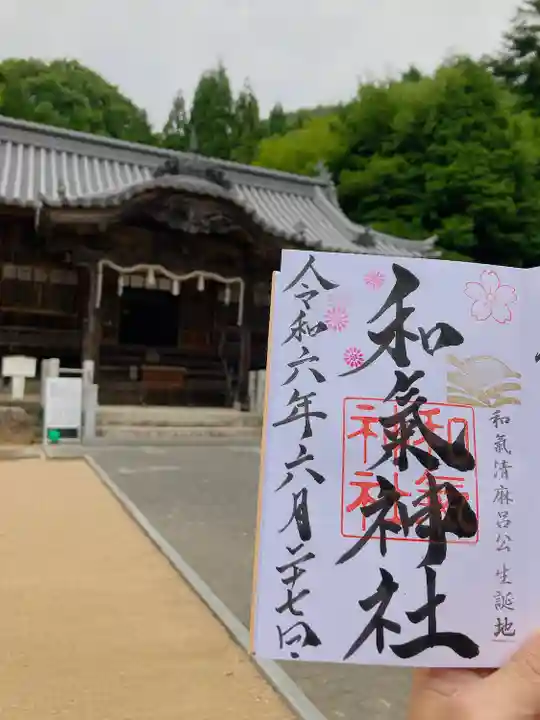 和氣清麻呂公生誕地
和氣神社
和氣
神社
令和六年六月二十七日